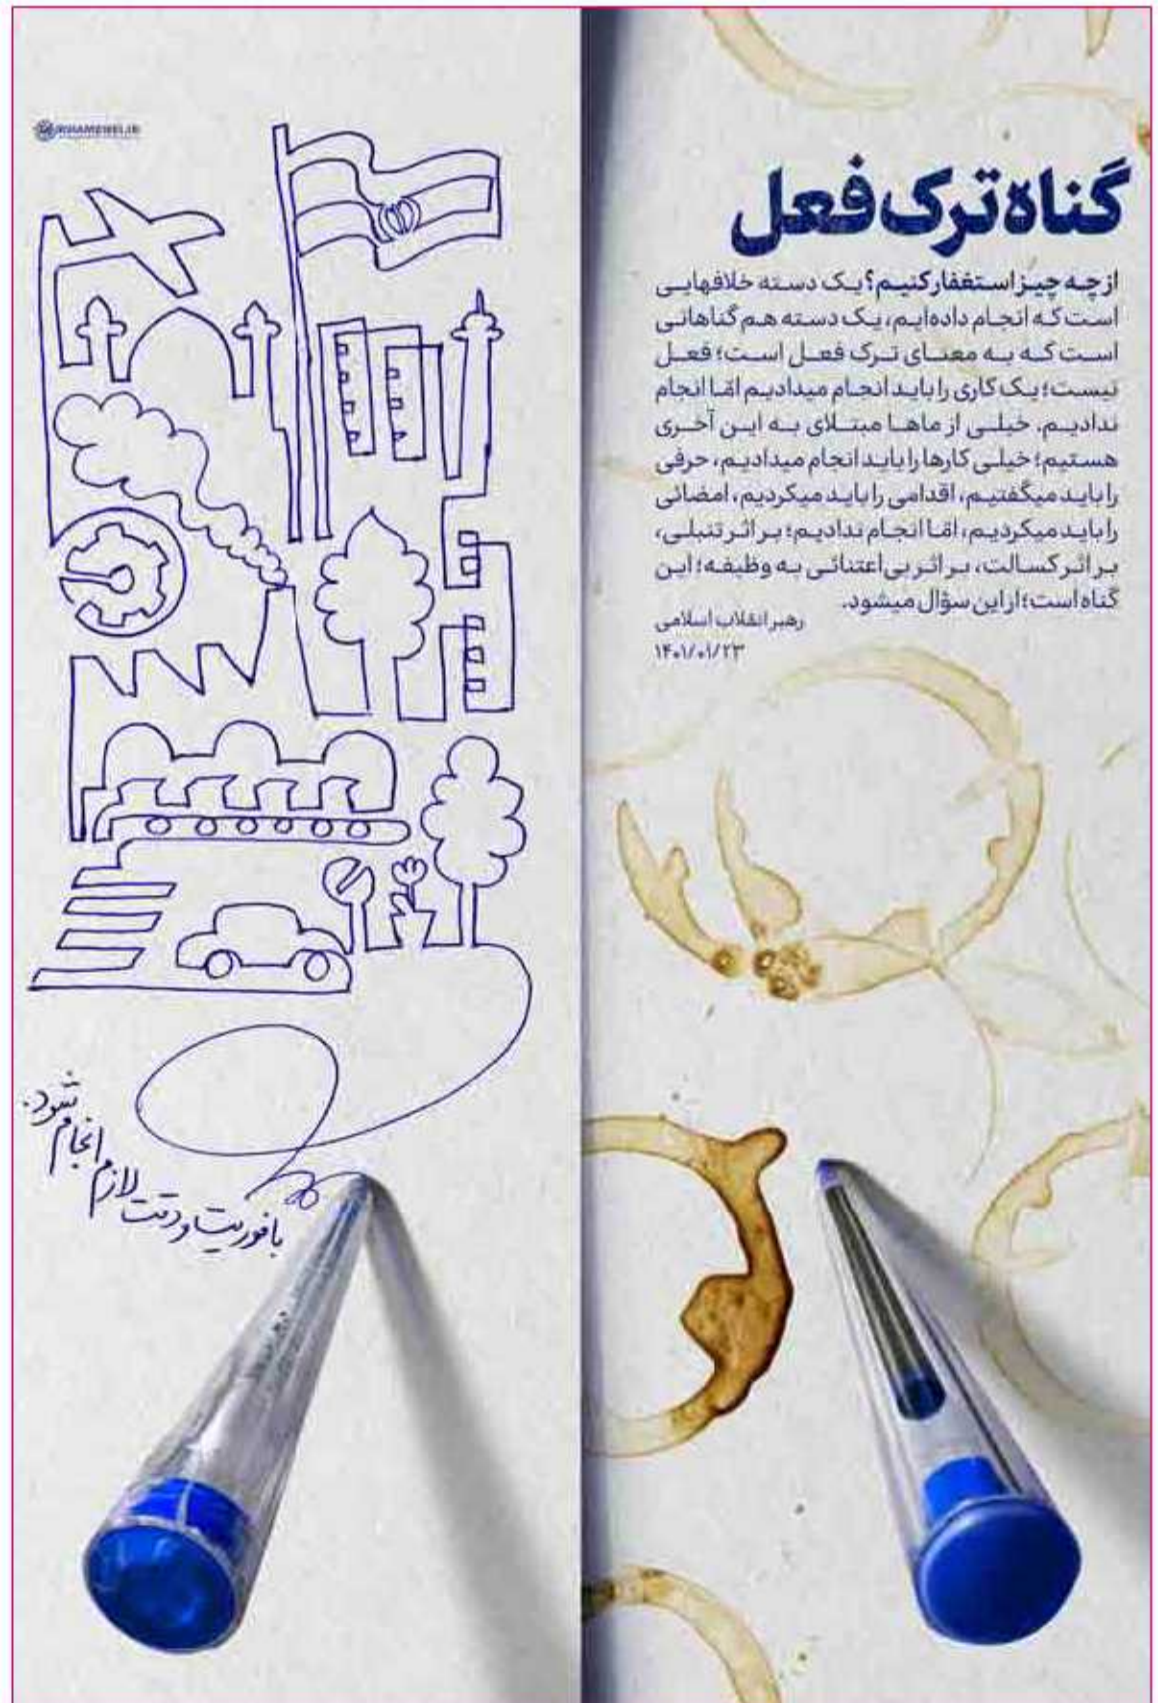 گناه ترک فعل
از چه چیز استغفار کنیم؟ یک دسته خلافهایی
است که انجام داده‌ایم، یک دسته هم گناهانی
است که به معنای ترک فعل است؛ فعل
نیست؛ یک کاری را باید انجام میدادیم امّا انجام
ندادیم. خیلی از ماها مبتلای به این آخری
هستیم؛ خیلی کارها را باید انجام میدادیم، حرفی
را باید میگفتیم، اقدامی را باید میکردیم، امضائی
را باید میکردیم، امّا انجام ندادیم؛ بر اثر تنبلی،
بر اثر کسالت، بر اثر بی‌اعتنائی به وظیفه؛ این
گناه است؛ از این سؤال میشود.
رهبر انقلاب اسلامی
۱۴۰۱/۰۱/۲۳
با فوریت و دقت لازم انجام شود.